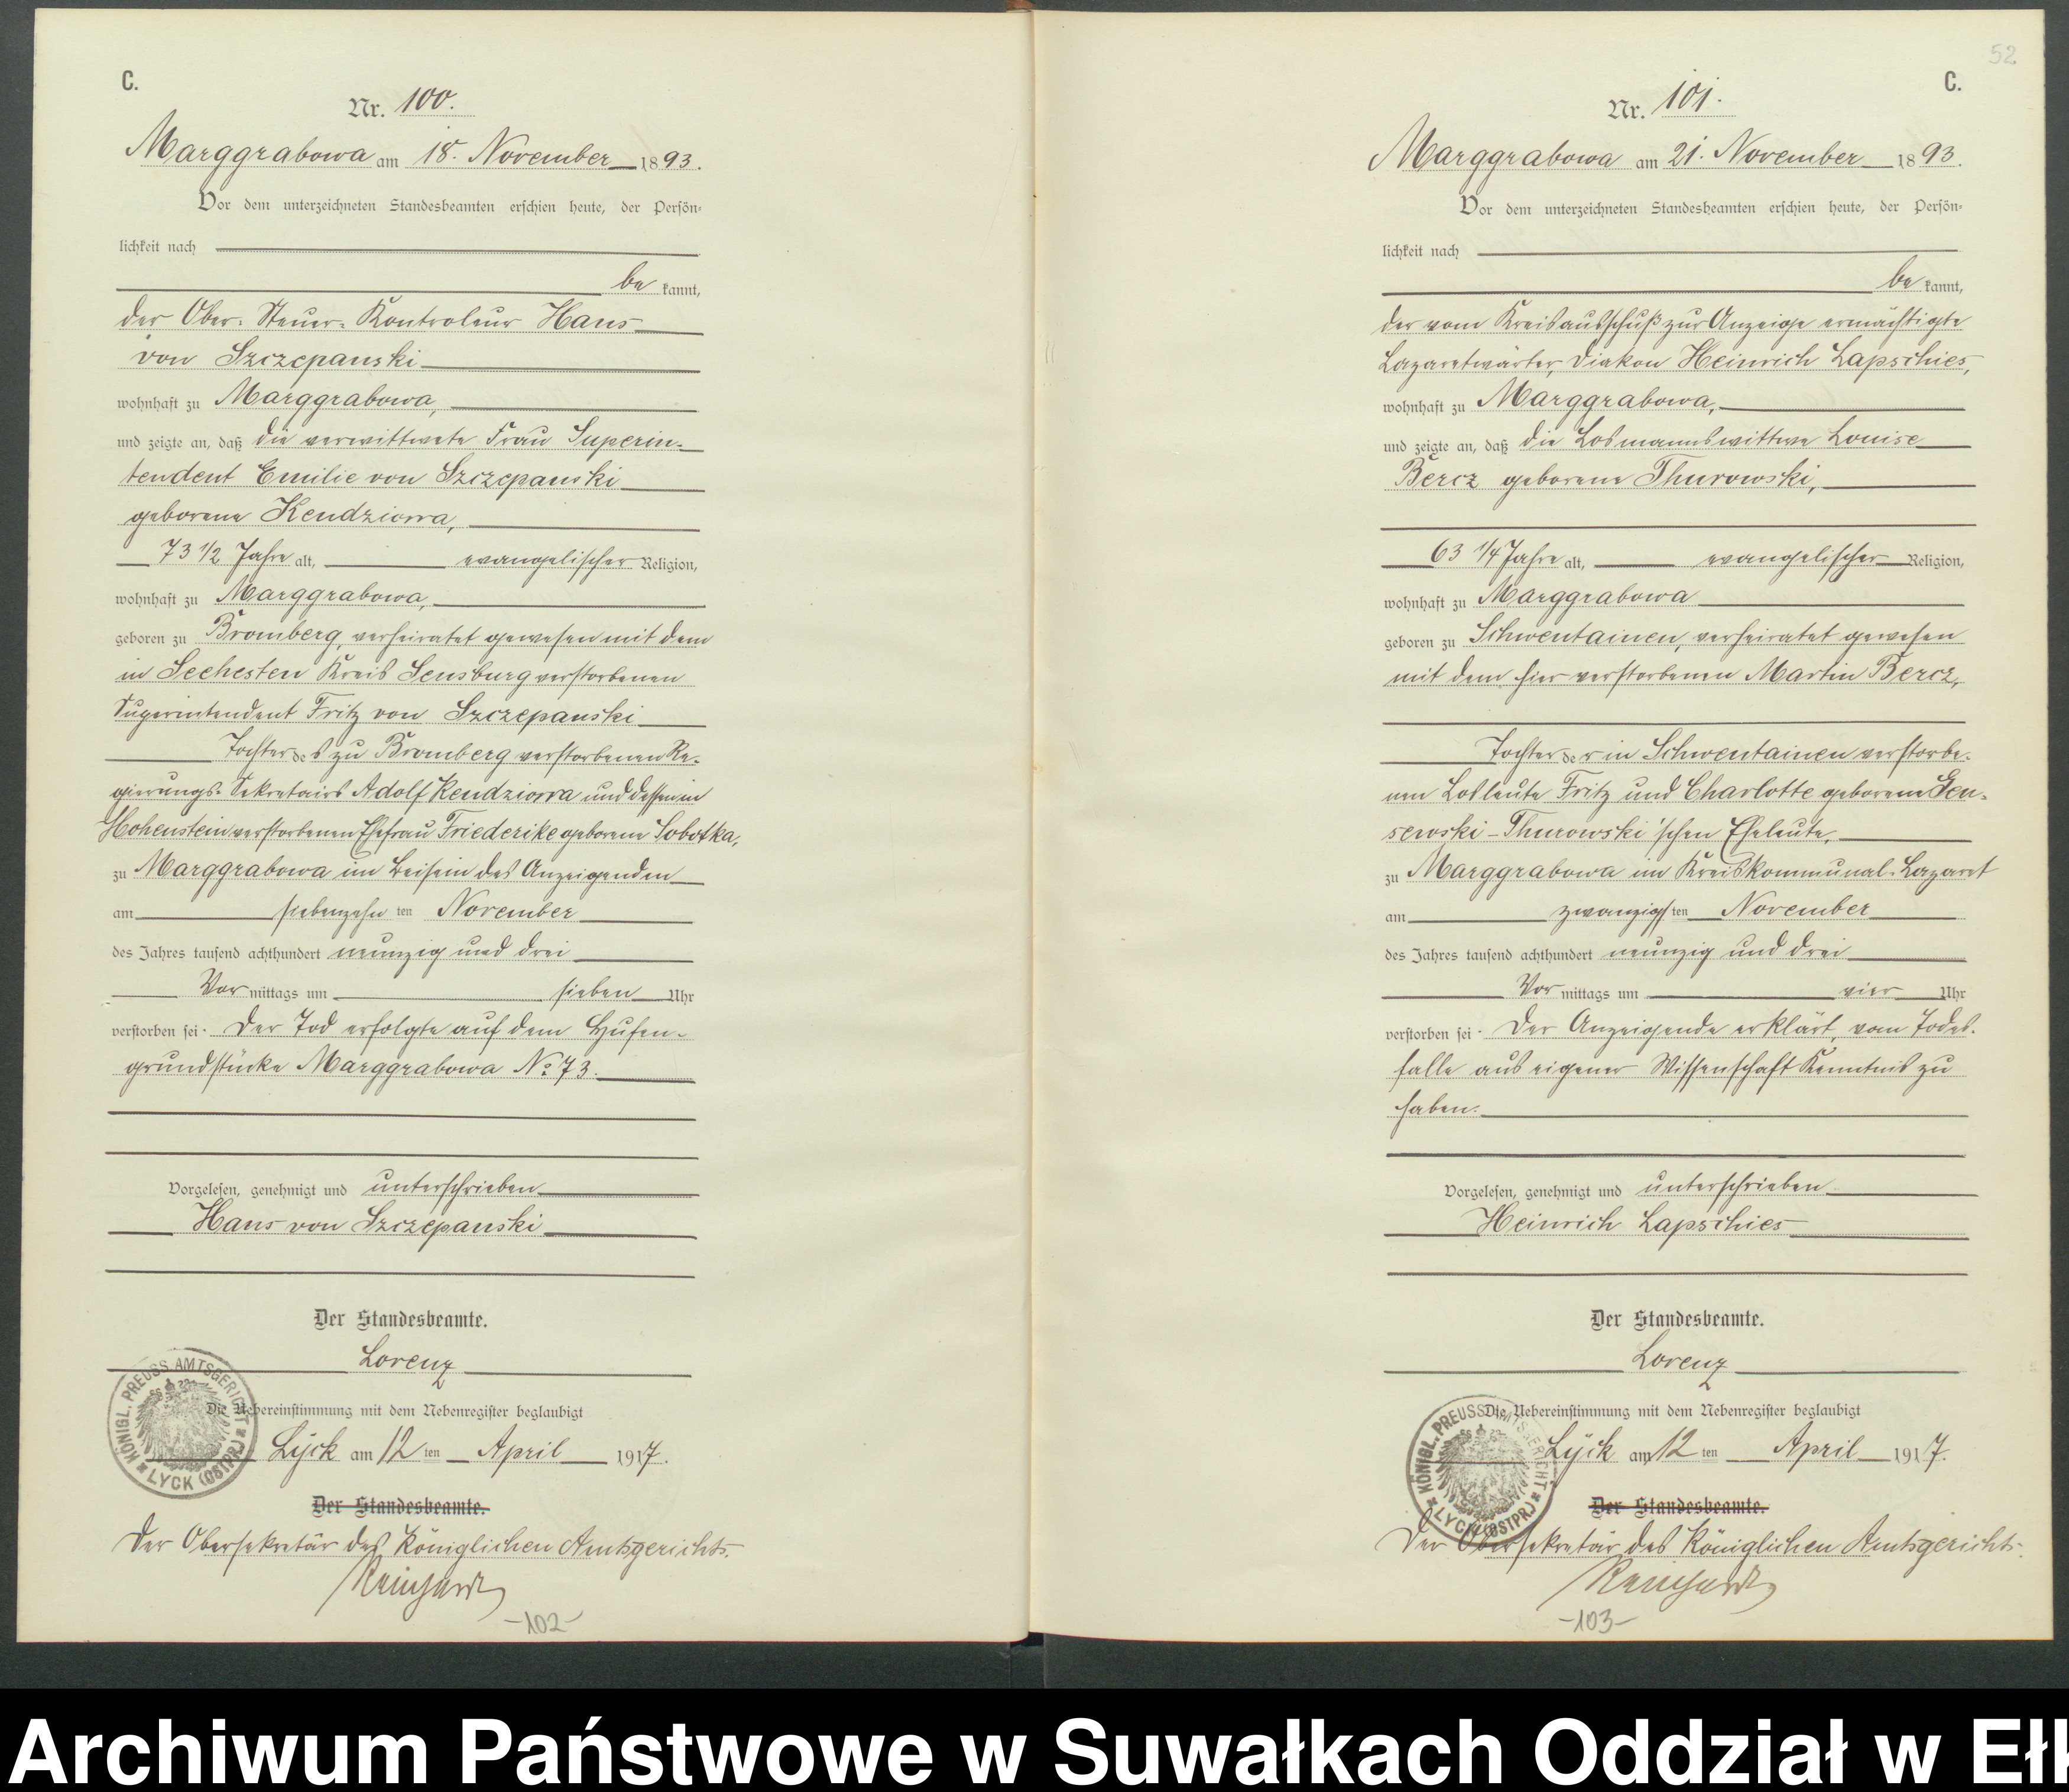 52
C.
Nr. 100.
Marggrabowa am 18. November 1893.
Vor dem unterzeichneten Standesbeamten erschien heute, der Persön-
lichkeit nach
bekannt,
der Ober-Steuer-Kontroleur Hans
von Szczepanski
wohnhaft zu Marggrabowa,
und zeigte an, daß die verwittwete Frau Superin-
tendent Emilie von Szczepanski
geborene Kendziorra,
73 1/2 Jahre alt, evangelischer Religion,
wohnhaft zu Marggrabowa,
geboren zu Bromberg, verheiratet gewesen mit dem
in Seehesten Kreis Sensburg verstorbenen
Superintendent Fritz von Szczepanski
Tochter des zu Bromberg verstorbenen Re-
gierungs-Sekretairs Adolf Kendziorra und dessen in
Hohenstein verstorbenen Ehefrau Friederike geborene Sobotka,
zu Marggrabowa im Beisein des Anzeigenden
am siebenzehnten November
des Jahres tausend achthundert neunzig und drei
Vormittags um sieben Uhr
verstorben sei. Der Tod erfolgte auf dem Hufen-
grundstücke Marggrabowa No 73.
Vorgelesen, genehmigt und unterschrieben
Hans von Szczepanski
Der Standesbeamte.
Lorenz
Die Uebereinstimmung mit dem Nebenregister beglaubigt
Lyck am 12ten April 1917.
Der Standesbeamte.
Der Obersekretär des Königlichen Amtsgerichts.
KÖNIGL. PREUSS. AMTSGERICHT LYCK (OSTPR.)
-102-
C.
Nr. 101.
Marggrabowa am 21. November 1893.
Vor dem unterzeichneten Standesbeamten erschien heute, der Persön-
lichkeit nach
bekannt,
der vom Kreisausschuß zur Anzeige ermächtigte
Lazaretwärter, Diakon Heinrich Lapschies,
wohnhaft zu Marggrabowa,
und zeigte an, daß die Losmannswittwe Louise
Bercz geborene Thurowski,
63 1/4 Jahre alt, evangelischer Religion,
wohnhaft zu Marggrabowa
geboren zu Schwentainen, verheiratet gewesen
mit dem hier verstorbenen Martin Bercz,
Tochter der in Schwentainen verstorbe-
nen Losleute Fritz und Charlotte geborene
Thurowski'schen Eheleute,
zu Marggrabowa im Kreiskommunal-Lazaret
am zwanzigsten November
des Jahres tausend achthundert neunzig und drei
Vormittags um vier Uhr
verstorben sei. Der Anzeigende erklärt, vom Todes-
falle aus eigener Wissenschaft Kenntnis zu
haben.
Vorgelesen, genehmigt und unterschrieben
Heinrich Lapschies
Der Standesbeamte.
Lorenz
Die Uebereinstimmung mit dem Nebenregister beglaubigt
Lyck am 12ten April 1917.
Der Standesbeamte.
Der Obersekretär des Königlichen Amtsgerichts.
KÖNIGL. PREUSS. AMTSGERICHT LYCK (OSTPR.)
-103-
Archiwum Państwowe w Suwałkach Oddział w Eł